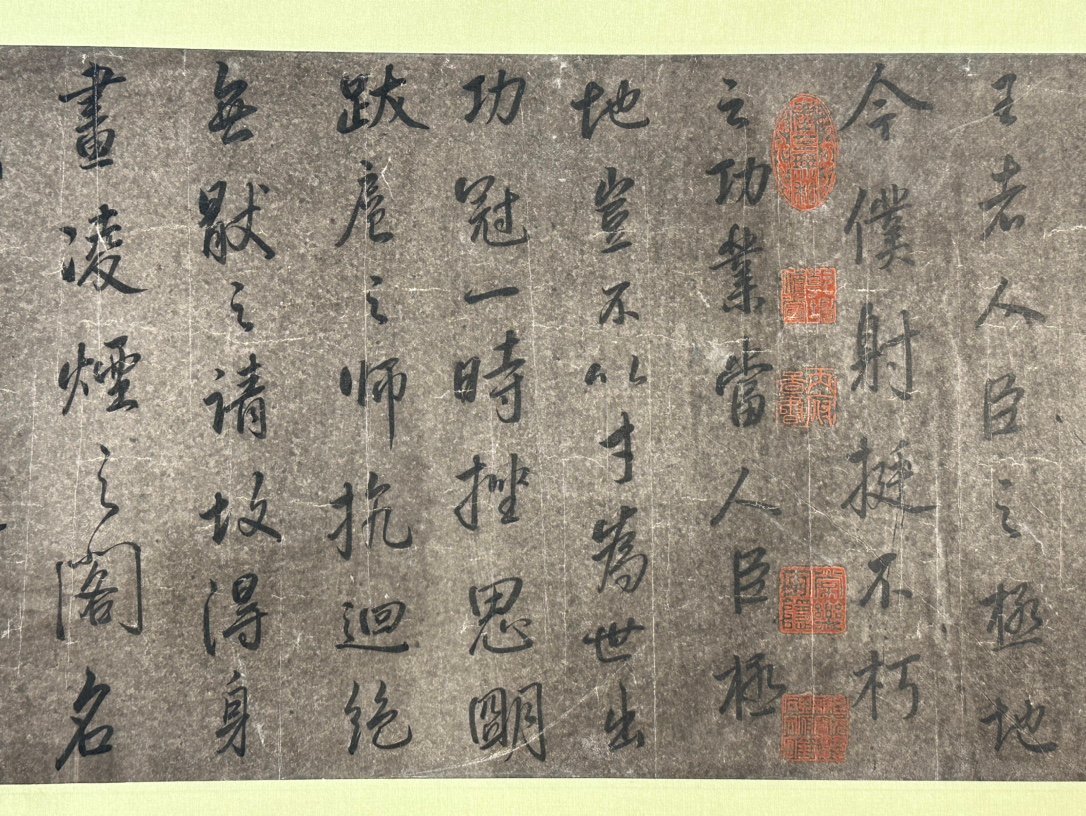 王者人臣之極地
今僕射挺不朽
之功業當人臣極
地豈不以才為世出
功冠一時挫思明
跋扈之师抗迴紇
無猒之請故得身
畫淩煙之閣名